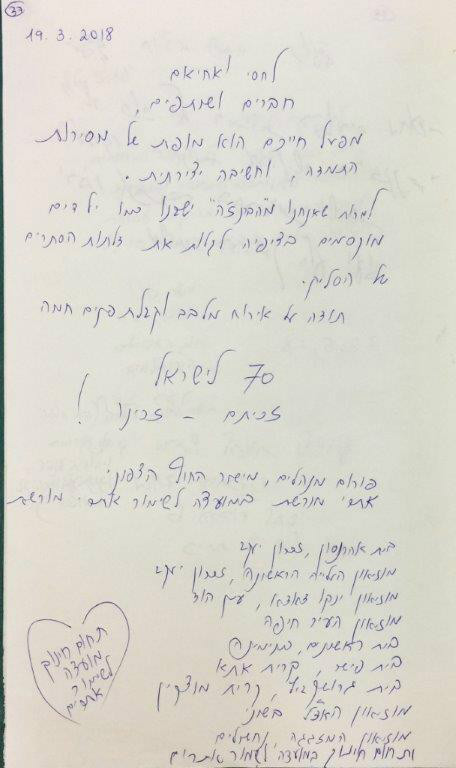 33
19.3.2018
לחסי ואחיאם
חברים ושותפים,
מפעל חייכם הוא מופת של מסירות
התמדה, וחשיבה יצירתית.
למרות שאנחנו "מהבנזה" ישבנו כמו ילדים
מוקסמים בציפיה לגלות את דלתות הסתרים
של הסליק.
תודה על אירוח מלבב וקבלת פנים חמה
70 לישראל
זכיתם - זכינו!
פורום מנהלים, מישור החוף הצפוני
אתרי מורשת במועצה לשימור אתרי מורשת
בית אהרנסון, זכרון יעקב
מוזיאון העלייה הראשונה, זכרון יעקב
מוזיאון ינקו דאדא, עין הוד
מוזיאון העיר חיפה
בית ראשונים, בנימינה
בית פישר, קרית אתא
בית גרושקביץ, קרית מוצקין
מוזיאון האצ"ל בשוני
מוזיאון המזגגה נחשולים
ותחום חינוך במועצה לשימור אתרים
תחום חינוך
מועצה
לשימור
אתרים